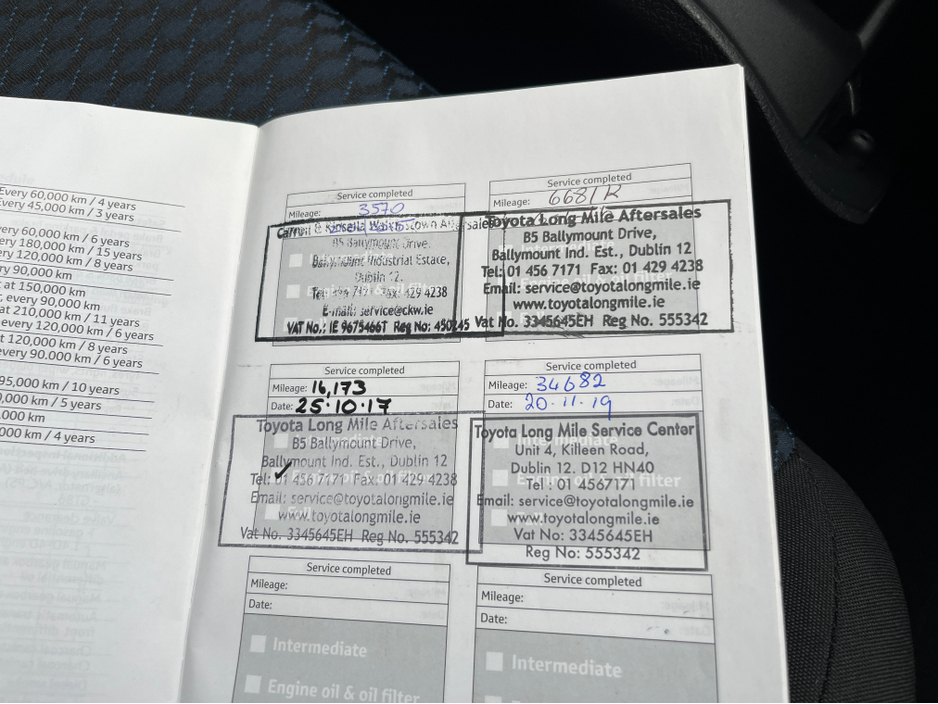 Every 60,000 km / 4 years
Every 45,000 km / 3 years
every 60,000 km / 6 years
every 180,000 km / 15 years
every 120,000 km / 8 years
every 90,000 km
at 150,000 km
, every 90,000 km
at 210,000 km / 11 years
every 120,000 km / 6 years
at 120,000 km / 8 years
every 90.000 km / 6 years
95,000 km / 10 years
0,000 km / 5 years
.000 km
000 km / 4 years
Service completed
Mileage: 3570
Ballymount Drive,
Ballymount Industrial Estate,
Dublin 12.
Fax: 429 4238
E-mail: service@ckw.ie
VAT No.: IE 9675466T Reg No: 450245
Service completed
Mileage: 6681K
Toyota Long Mile Aftersales
B5 Ballymount Drive,
Ballymount Ind. Est., Dublin 12
Tel: 01 456 7171 Fax: 01 429 4238
Email: service@toyotalongmile.ie
www.toyotalongmile.ie
Vat No. 3345645EH Reg No. 555342
Service completed
Mileage: 16,173
Date: 25·10·17
Toyota Long Mile Aftersales
B5 Ballymount Drive,
Ballymount Ind. Est., Dublin 12
Tel: 01 456 7171 Fax: 01 429 4238
Email: service@toyotalongmile.ie
www.toyotalongmile.ie
Vat No. 3345645EH Reg No. 555342
Service completed
Mileage: 34682
Date: 20·11·19
Toyota Long Mile Service Center
Unit 4, Killeen Road,
Dublin 12. D12 HN40
Tel : 01 4567171
Email: service@toyotalongmile.ie
www.toyotalongmile.ie
Vat No: 3345645EH
Reg No: 555342
Service completed
Mileage:
Date:
Intermediate
Engine oil & oil filter
Service completed
Mileage:
Date:
Intermediate